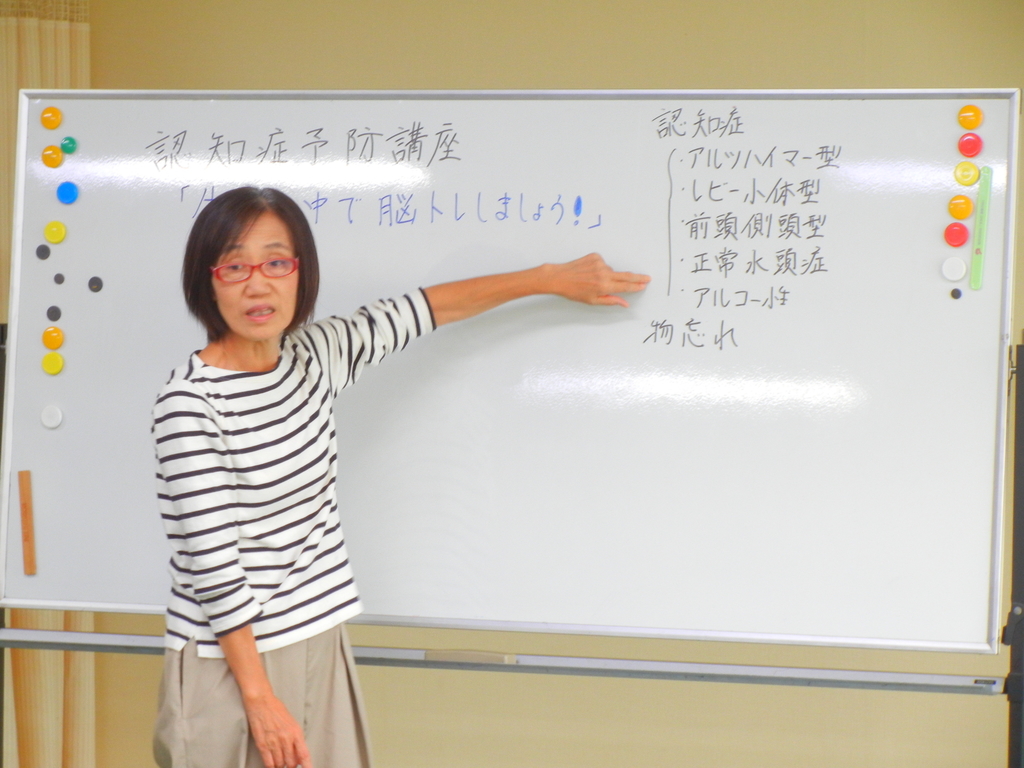 認知症予防講座
「 中で脳トレしましょう!」
認知症
・アルツハイマー型
・レビー小体型
・前頭側頭型
・正常水頭症
・アルコール性
物忘れ